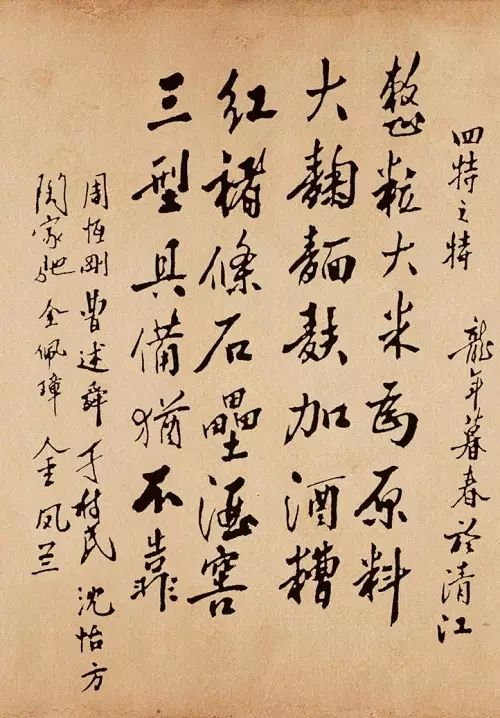 四特之特 龍年暮春於清江
整粒大米為原料
大麯麵麩加酒糟
紅褚條石壘酒窖
三型具備猶不靠
周恆剛 曹述舜 于樹民 沈怡方
陶家馳 金佩璋 金鳳蘭